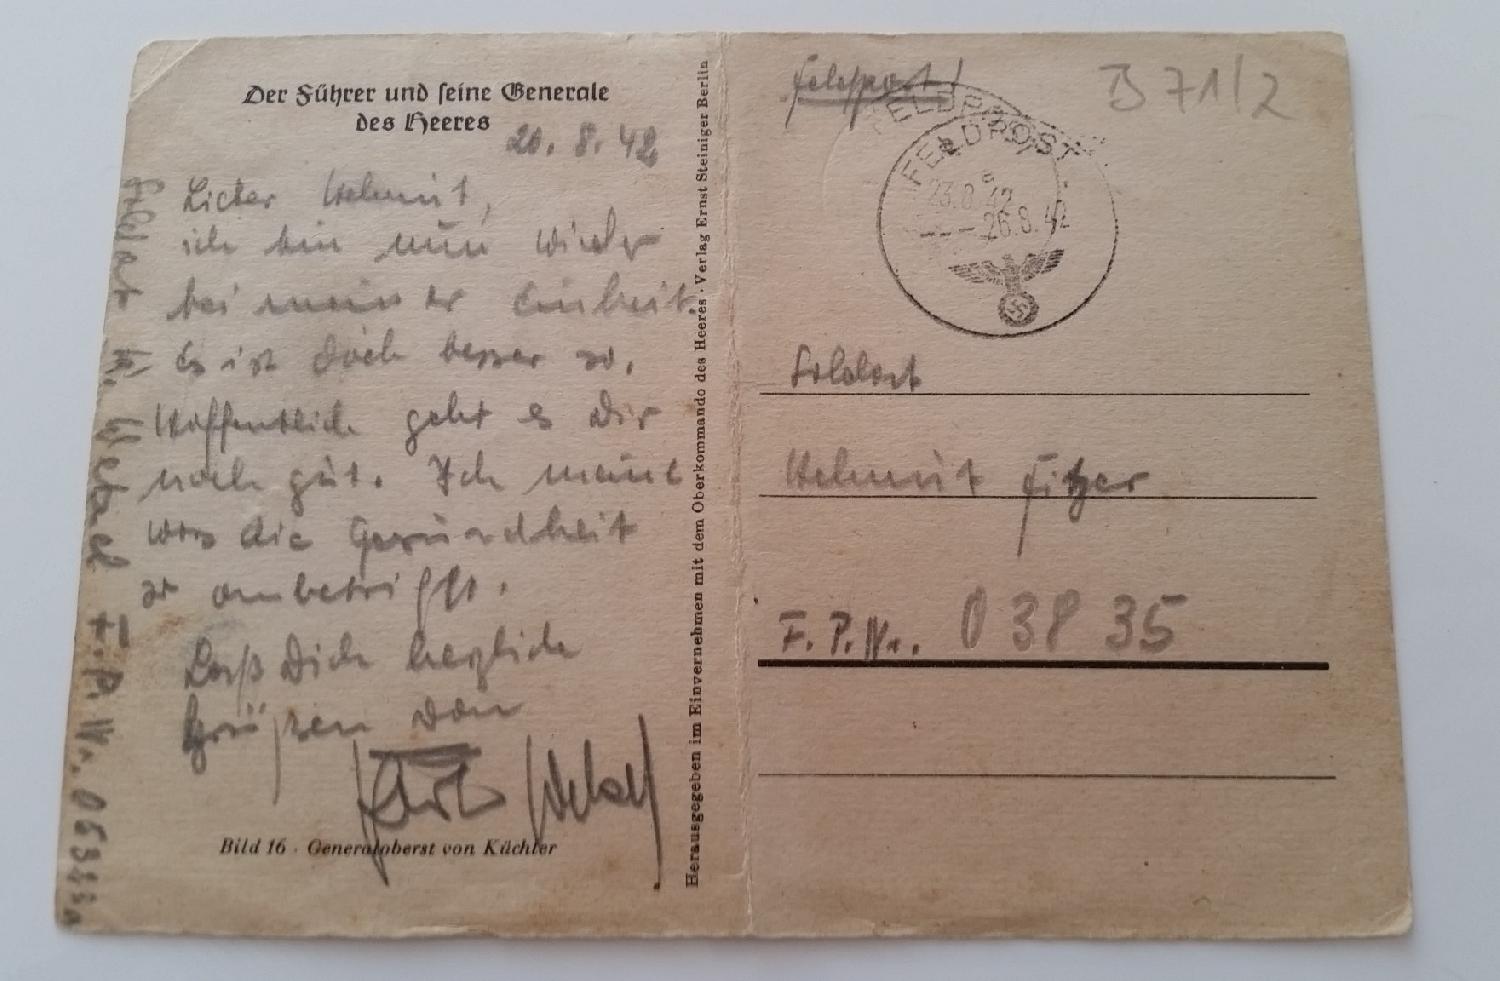 Der Führer und seine Generale
des Heeres
20. 8. 42
Lieber Helmut,
ich bin nun wieder
bei meiner Einheit.
Es ist doch besser so.
Hoffentlich geht es Dir
noch gut. Ich meine
was die Gesundheit
anbetrifft.
Laß Dich herzlich
grüßen von
Bild 16 · Generaloberst von Küchler
Soldat K. F.P.Nr.
Herausgegeben im Einvernehmen mit dem Oberkommando des Heeres · Verlag Ernst Steiniger Berlin
Feldpost!
B 71/2
FELDPOST
FELDPOST
23.8.42
26.8.42
Soldat
Helmut Fitzer
F.P.Nr. 03835